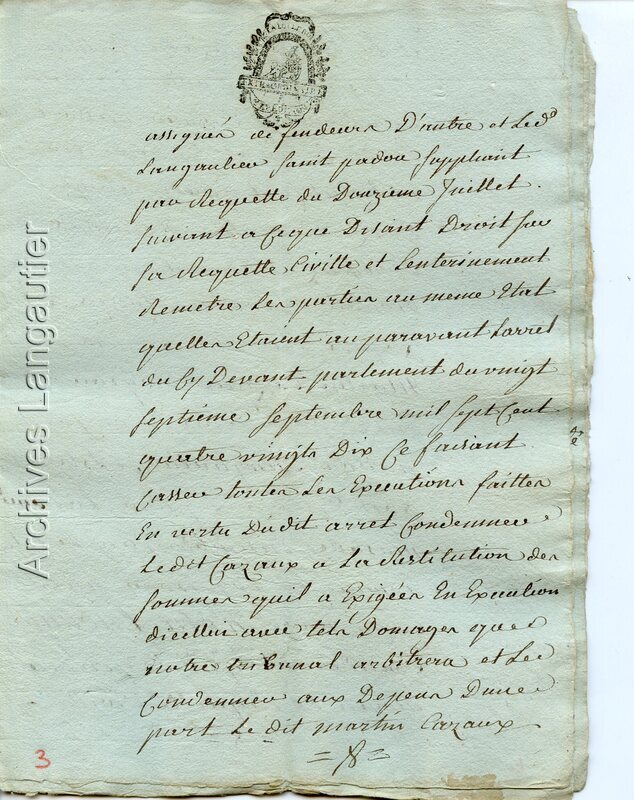 assignés defendeurs D'autre et Led.
Langautier fanit padou suppliant
par Requette du Douzieme Juillet.
suivant a ce que Disant Droit sur
sa Requette Civille et Lenterinement
Remetre Les parties au meme Etat
quelles Etaient au paravant Larret
du Cy Devant parlement du vingt
septieme septembre mil sept Cent
quatre vingts Dix Ce faisant
Casser toutes Les Executions faittes
En vertu Du dit arret Condemner
Le dit Cazaux a La Restitution des
sommes quil a Exigées En Execution
dicellui avec tels Domages que
notre tribunal arbitrera et Le
Condemner aux Depens Dune
part Le dit martin Cazaux
3
Archives Langautier